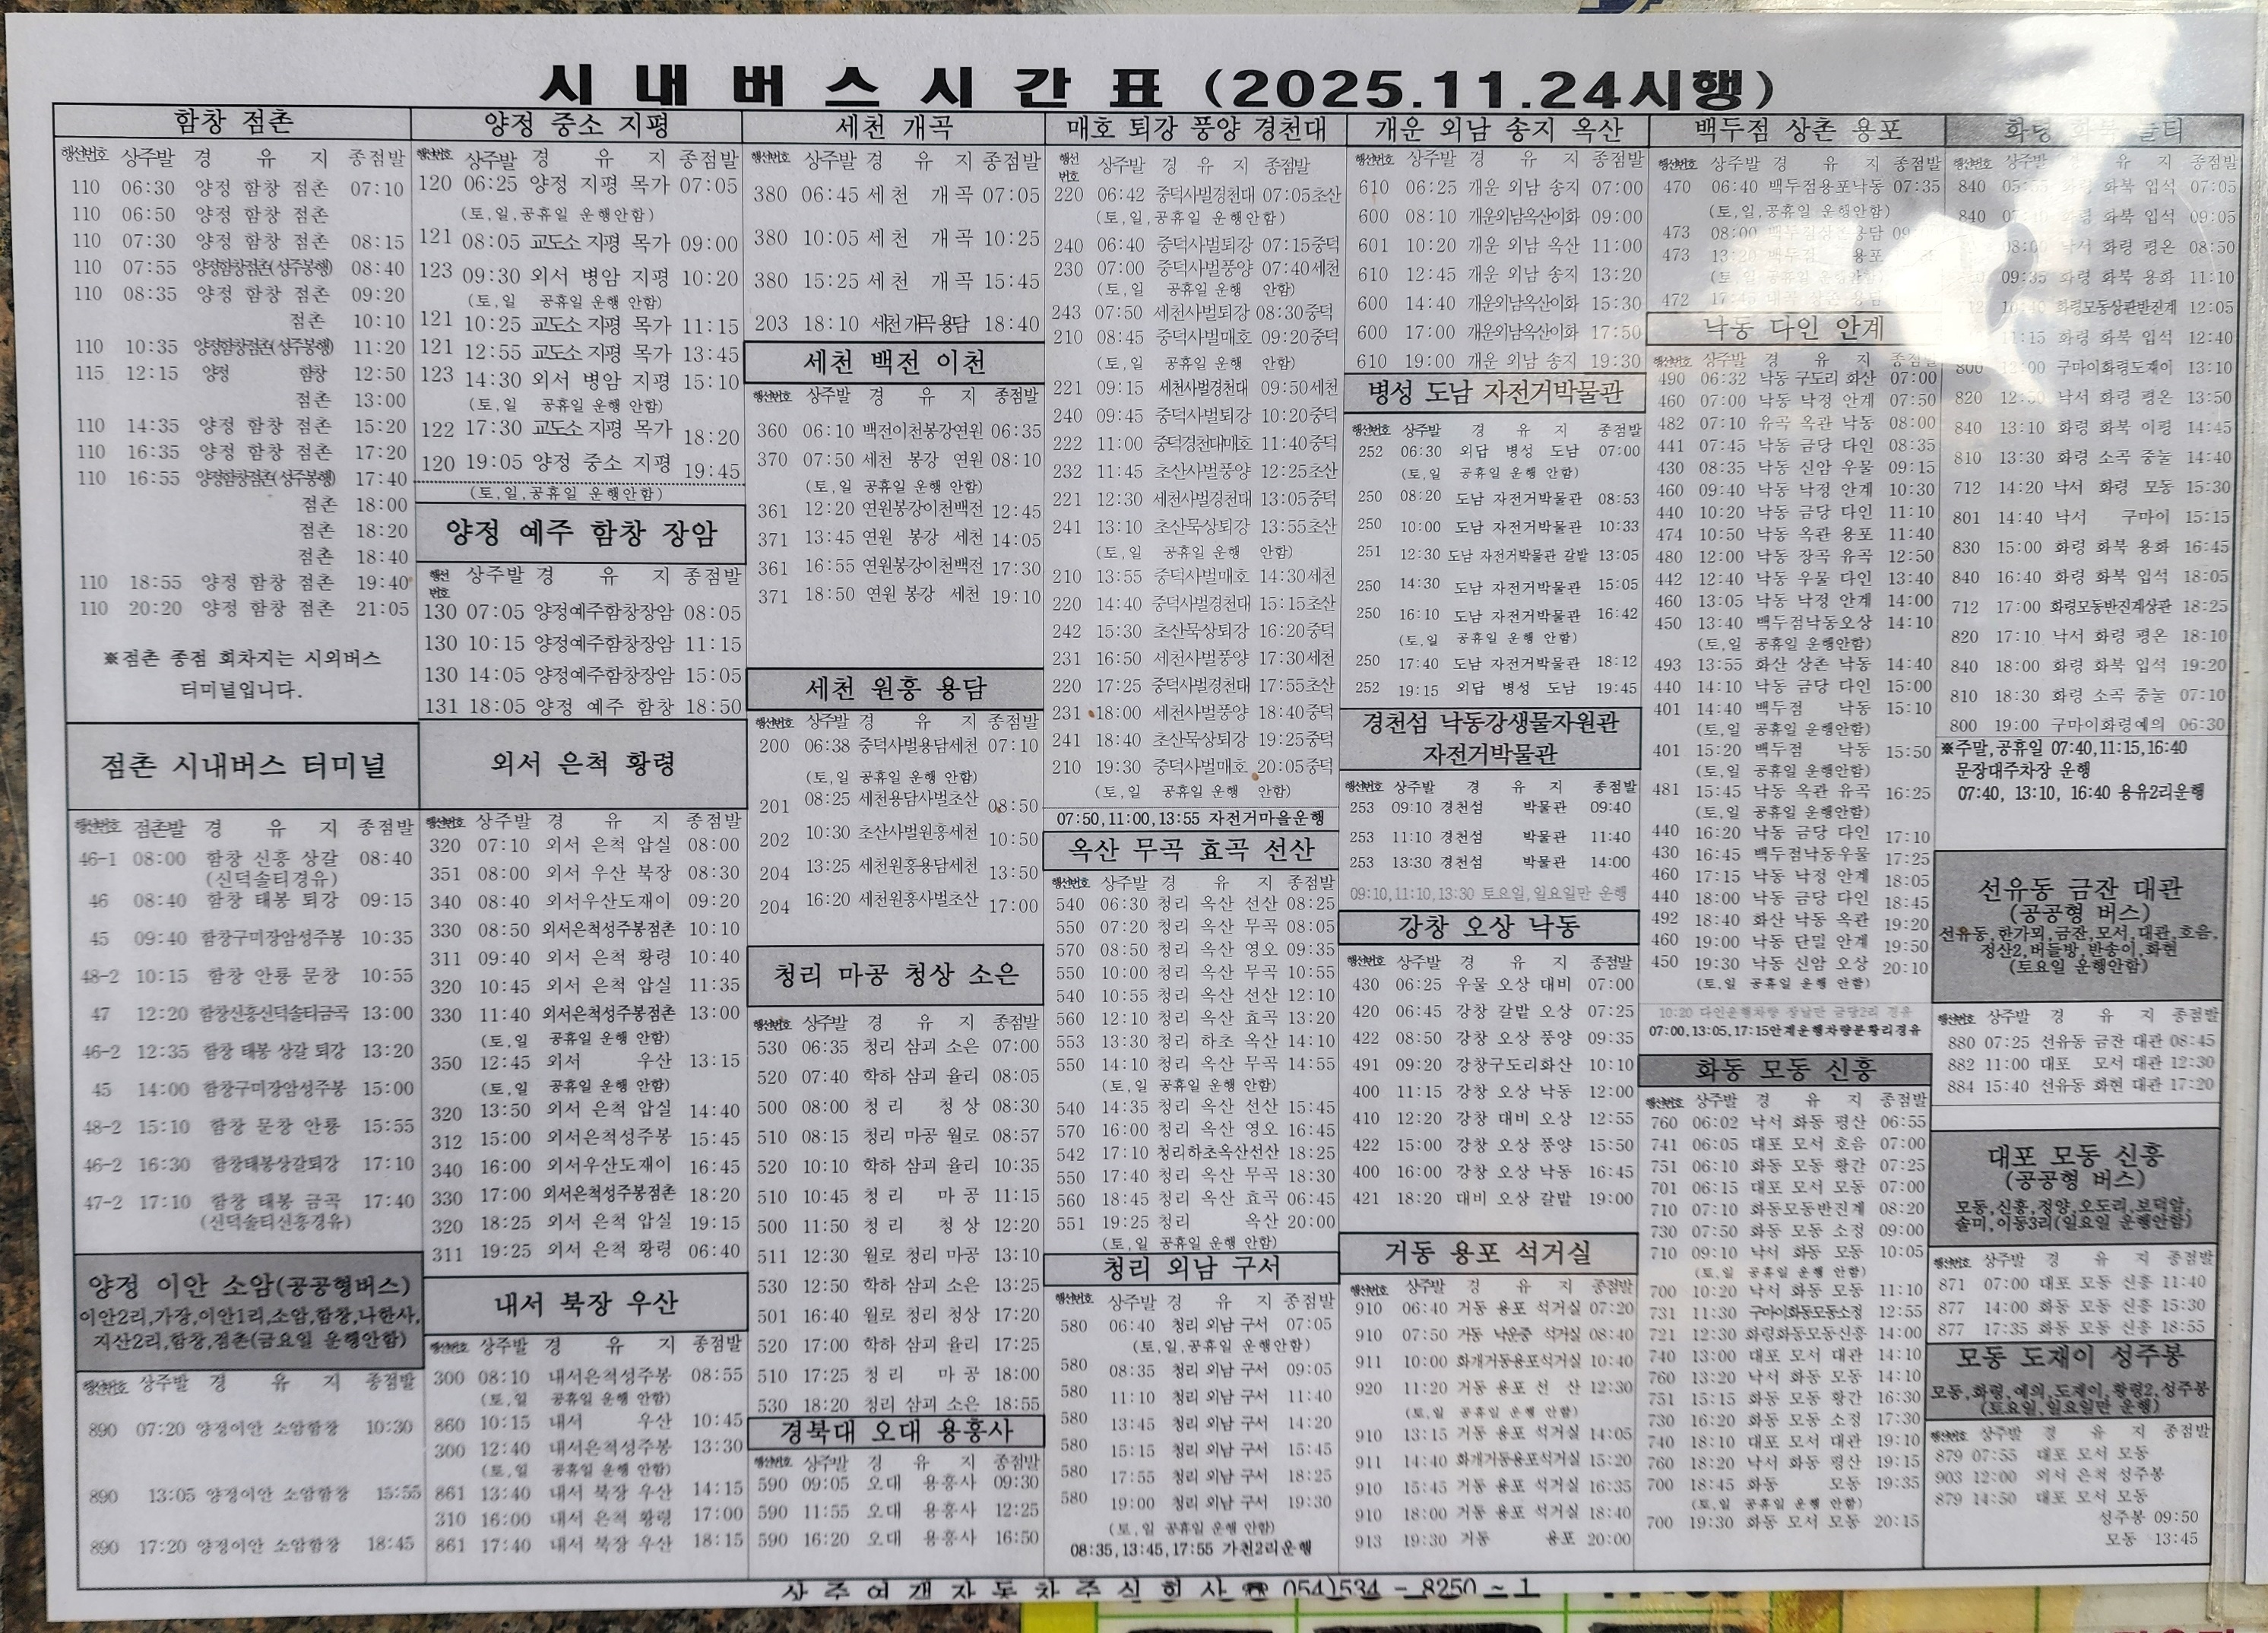 시내버스시간표 (2025.11.24시행)
함창 점촌
행선번호 상주발 경 유 지 종점발
110 06:30 양정 함창 점촌 07:10
110 06:50 양정 함창 점촌
110 07:30 양정 함창 점촌 08:15
110 07:55 양정함창점촌(성주봉행) 08:40
110 08:35 양정 함창 점촌 09:20
점촌 10:10
110 10:35 양정함창점촌(성주봉행) 11:20
115 12:15 양정 함창 12:50
점촌 13:00
110 14:35 양정 함창 점촌 15:20
110 16:35 양정 함창 점촌 17:20
110 16:55 양정함창점촌(성주봉행) 17:40
점촌 18:00
점촌 18:20
점촌 18:40
110 18:55 양정 함창 점촌 19:40
110 20:20 양정 함창 점촌 21:05
※점촌 종점 회차지는 시외버스
터미널입니다.
점촌 시내버스 터미널
행선번호 점촌발 경 유 지 종점발
46-1 08:00 함창 신흥 상갈 08:40
(신덕솔티경유)
46 08:40 함창 태봉 퇴강 09:15
45 09:40 함창구미장암성주봉 10:35
48-2 10:15 함창 안룡 문창 10:55
47 12:20 함창신흥신덕솔티금곡 13:00
46-2 12:35 함창 태봉 상갈 퇴강 13:20
45 14:00 함창구미장암성주봉 15:00
48-2 15:10 함창 문창 안룡 15:55
46-2 16:30 함창태봉상갈퇴강 17:10
47-2 17:10 함창 태봉 금곡 17:40
(신덕솔티신흥경유)
양정 이안 소암(공공형버스)
이안2리,가장,이안1리,소암,함창,나한사,
지산2리,함창,점촌(금요일 운행안함)
행선번호 상주발 경 유 지 종점발
890 07:20 양정이안 소암함창 10:30
890 13:05 양정이안 소암함창 15:55
890 17:20 양정이안 소암함창 18:45
양정 중소 지평
행선번호 상주발 경 유 지 종점발
120 06:25 양정 지평 목가 07:05
(토,일,공휴일 운행안함)
121 08:05 교도소 지평 목가 09:00
123 09:30 외서 병암 지평 10:20
(토,일 공휴일 운행 안함)
121 10:25 교도소 지평 목가 11:15
121 12:55 교도소 지평 목가 13:45
123 14:30 외서 병암 지평 15:10
(토,일 공휴일 운행 안함)
122 17:30 교도소 지평 목가 18:20
120 19:05 양정 중소 지평 19:45
(토,일,공휴일 운행안함)
양정 예주 함창 장암
행선번호 상주발 경 유 지 종점발
130 07:05 양정예주함창장암 08:05
130 10:15 양정예주함창장암 11:15
130 14:05 양정예주함창장암 15:05
131 18:05 양정 예주 함창 18:50
외서 은척 황령
행선번호 상주발 경 유 지 종점발
320 07:10 외서 은척 압실 08:00
351 08:00 외서 우산 북장 08:30
340 08:40 외서우산도재이 09:20
330 08:50 외서은척성주봉점촌 10:10
311 09:40 외서 은척 황령 10:40
320 10:45 외서 은척 압실 11:35
330 11:40 외서은척성주봉점촌 13:00
(토,일 공휴일 운행 안함)
350 12:45 외서 우산 13:15
(토,일 공휴일 운행 안함)
320 13:50 외서 은척 압실 14:40
312 15:00 외서은척성주봉 15:45
340 16:00 외서우산도재이 16:45
330 17:00 외서은척성주봉점촌 18:20
320 18:25 외서 은척 압실 19:15
311 19:25 외서 은척 황령 06:40
내서 북장 우산
행선번호 상주발 경 유 지 종점발
300 08:10 내서은척성주봉 08:55
(토,일 공휴일 운행 안함)
860 10:15 내서 우산 10:45
300 12:40 내서은척성주봉 13:30
(토,일 공휴일 운행 안함)
861 13:40 내서 북장 우산 14:15
310 16:00 내서 은척 황령 17:00
861 17:40 내서 북장 우산 18:15
세천 개곡
행선번호 상주발 경 유 지 종점발
380 06:45 세천 개곡 07:05
380 10:05 세천 개곡 10:25
380 15:25 세천 개곡 15:45
203 18:10 세천개곡용담 18:40
세천 백전 이천
행선번호 상주발 경 유 지 종점발
360 06:10 백전이천봉강연원 06:35
370 07:50 세천 봉강 연원 08:10
(토,일 공휴일 운행 안함)
361 12:20 연원봉강이천백전 12:45
371 13:45 연원 봉강 세천 14:05
361 16:55 연원봉강이천백전 17:30
371 18:50 연원 봉강 세천 19:10
세천 원흥 용담
행선번호 상주발 경 유 지 종점발
200 06:38 중덕사벌용담세천 07:10
(토,일 공휴일 운행 안함)
201 08:25 세천용담사벌초산 08:50
202 10:30 초산사벌원흥세천 10:50
204 13:25 세천원흥용담세천 13:50
204 16:20 세천원흥사벌초산 17:00
청리 마공 청상 소은
행선번호 상주발 경 유 지 종점발
530 06:35 청리 삼괴 소은 07:00
520 07:40 학하 삼괴 율리 08:05
500 08:00 청리 청상 08:30
510 08:15 청리 마공 월로 08:57
520 10:10 학하 삼괴 율리 10:35
510 10:45 청리 마공 11:15
500 11:50 청리 청상 12:20
511 12:30 월로 청리 마공 13:10
530 12:50 학하 삼괴 소은 13:25
501 16:40 월로 청리 청상 17:20
520 17:00 학하 삼괴 율리 17:25
510 17:25 청리 마공 18:00
530 18:20 청리 삼괴 소은 18:55
경북대 오대 용흥사
행선번호 상주발 경 유 지 종점발
590 09:05 오대 용흥사 09:30
590 11:55 오대 용흥사 12:25
590 16:20 오대 용흥사 16:50
매호 퇴강 풍양 경천대
행선번호 상주발 경 유 지 종점발
220 06:42 중덕사벌경천대 07:05초산
(토,일,공휴일 운행안함)
240 06:40 중덕사벌퇴강 07:15중덕
230 07:00 중덕사벌풍양 07:40세천
(토,일 공휴일 운행 안함)
243 07:50 세천사벌퇴강 08:30중덕
210 08:45 중덕사벌매호 09:20중덕
(토,일 공휴일 운행 안함)
221 09:15 세천사벌경천대 09:50세천
240 09:45 중덕사벌퇴강 10:20중덕
222 11:00 중덕경천대매호 11:40중덕
232 11:45 초산사벌풍양 12:25초산
221 12:30 세천사벌경천대 13:05중덕
241 13:10 초산묵상퇴강 13:55초산
(토,일 공휴일 운행 안함)
210 13:55 중덕사벌매호 14:30세천
220 14:40 중덕사벌경천대 15:15초산
242 15:30 초산묵상퇴강 16:20중덕
231 16:50 세천사벌풍양 17:30세천
220 17:25 중덕사벌경천대 17:55초산
231 18:00 세천사벌풍양 18:40중덕
241 18:40 초산묵상퇴강 19:25중덕
210 19:30 중덕사벌매호 20:05중덕
(토,일 공휴일 운행 안함)
07:50,11:00,13:55 자전거마을운행
옥산 무곡 효곡 선산
행선번호 상주발 경 유 지 종점발
540 06:30 청리 옥산 선산 08:25
550 07:20 청리 옥산 무곡 08:05
570 08:50 청리 옥산 영오 09:35
550 10:00 청리 옥산 무곡 10:55
540 10:55 청리 옥산 선산 12:10
560 12:10 청리 옥산 효곡 13:20
553 13:30 청리 하초 옥산 14:10
550 14:10 청리 옥산 무곡 14:55
(토,일 공휴일 운행 안함)
540 14:35 청리 옥산 선산 15:45
570 16:00 청리 옥산 영오 16:45
542 17:10 청리하초옥산선산 18:25
550 17:40 청리 옥산 무곡 18:30
560 18:45 청리 옥산 효곡 06:45
551 19:25 청리 옥산 20:00
(토,일 공휴일 운행 안함)
청리 외남 구서
행선번호 상주발 경 유 지 종점발
580 06:40 청리 외남 구서 07:05
(토,일,공휴일 운행안함)
580 08:35 청리 외남 구서 09:05
580 11:10 청리 외남 구서 11:40
580 13:45 청리 외남 구서 14:20
580 15:15 청리 외남 구서 15:45
580 17:55 청리 외남 구서 18:25
580 19:00 청리 외남 구서 19:30
(토,일 공휴일 운행 안함)
08:35,13:45,17:55 가천2리운행
개운 외남 송지 옥산
행선번호 상주발 경 유 지 종점발
610 06:25 개운 외남 송지 07:00
600 08:10 개운외남옥산이화 09:00
601 10:20 개운 외남 옥산 11:00
610 12:45 개운 외남 송지 13:20
600 14:40 개운외남옥산이화 15:30
600 17:00 개운외남옥산이화 17:50
610 19:00 개운 외남 송지 19:30
병성 도남 자전거박물관
행선번호 상주발 경 유 지 종점발
252 06:30 외답 병성 도남 07:00
(토,일 공휴일 운행 안함)
250 08:20 도남 자전거박물관 08:53
250 10:00 도남 자전거박물관 10:33
251 12:30 도남 자전거박물관 갈밭 13:05
250 14:30 도남 자전거박물관 15:05
250 16:10 도남 자전거박물관 16:42
(토,일 공휴일 운행 안함)
250 17:40 도남 자전거박물관 18:12
252 19:15 외답 병성 도남 19:45
경천섬 낙동강생물자원관
자전거박물관
행선번호 상주발 경 유 지 종점발
253 09:10 경천섬 박물관 09:40
253 11:10 경천섬 박물관 11:40
253 13:30 경천섬 박물관 14:00
09:10,11:10,13:30 토요일,일요일만 운행
강창 오상 낙동
행선번호 상주발 경 유 지 종점발
430 06:25 우물 오상 대비 07:00
420 06:45 강창 갈밭 오상 07:25
422 08:50 강창 오상 풍양 09:35
491 09:20 강창구도리화산 10:10
400 11:15 강창 오상 낙동 12:00
410 12:20 강창 대비 오상 12:55
422 15:00 강창 오상 풍양 15:50
400 16:00 강창 오상 낙동 16:45
421 18:20 대비 오상 갈밭 19:00
거동 용포 석거실
행선번호 상주발 경 유 지 종점발
910 06:40 거동 용포 석거실 07:20
910 07:50 거동 낙운중 석거실 08:40
911 10:00 화개거동용포석거실 10:40
920 11:20 거동 용포 선 산 12:30
(토,일 공휴일 운행 안함)
910 13:15 거동 용포 석거실 14:05
911 14:40 화개거동용포석거실 15:20
910 15:45 거동 용포 석거실 16:35
910 18:00 거동 용포 석거실 18:40
913 19:30 거동 용포 20:00
백두점 상촌 용포
행선번호 상주발 경 유 지 종점발
470 06:40 백두점용포낙동 07:35
(토,일,공휴일 운행안함)
473 08:00 백두점상촌용담 09
473 13:20 백두점 용포
(토,일 공휴일 운행안함)
472 17:45
낙동 다인 안계
행선번호 상주발 경 유 지 종점발
490 06:32 낙동 구도리 화산 07:00
460 07:00 낙동 낙정 안계 07:50
482 07:10 유곡 옥관 낙동 08:00
441 07:45 낙동 금당 다인 08:35
430 08:35 낙동 신암 우물 09:15
460 09:40 낙동 낙정 안계 10:30
440 10:20 낙동 금당 다인 11:10
474 10:50 낙동 옥관 용포 11:40
480 12:00 낙동 장곡 유곡 12:50
442 12:40 낙동 우물 다인 13:40
460 13:05 낙동 낙정 안계 14:00
450 13:40 백두점낙동오상 14:10
(토,일 공휴일 운행안함)
493 13:55 화산 상촌 낙동 14:40
440 14:10 낙동 금당 다인 15:00
401 14:40 백두점 낙동 15:10
(토,일 공휴일 운행안함)
401 15:20 백두점 낙동 15:50
(토,일 공휴일 운행안함)
481 15:45 낙동 옥관 유곡 16:25
(토,일 공휴일 운행안함)
440 16:20 낙동 금당 다인 17:10
430 16:45 백두점낙동우물 17:25
460 17:15 낙동 낙정 안계 18:05
440 18:00 낙동 금당 다인 18:45
492 18:40 화산 낙동 옥관 19:20
460 19:00 낙동 단밀 안계 19:50
450 19:30 낙동 신암 오상 20:10
(토,일 공휴일 운행 안함)
10:20 다인운행차량 장날만 금당2리 경유
07:00,13:05,17:15안계운행차량분황리경유
화동 모동 신흥
행선번호 상주발 경 유 지 종점발
760 06:02 낙서 화동 평산 06:55
741 06:05 대포 모서 호음 07:00
751 06:10 화동 모동 황간 07:25
701 06:15 대포 모서 모동 07:00
710 07:10 화동모동반진계 08:20
730 07:50 화동 모동 소정 09:00
710 09:10 낙서 화동 모동 10:05
(토,일 공휴일 운행 안함)
700 10:20 낙서 화동 모동 11:10
731 11:30 구마이화동모동소정 12:55
721 12:30 화령화동모동신흥 14:00
740 13:00 대포 모서 대관 14:10
760 13:20 낙서 화동 모동 14:10
751 15:15 화동 모동 황간 16:30
730 16:20 화동 모동 소정 17:30
740 18:10 대포 모서 대관 19:10
760 18:20 낙서 화동 평산 19:15
700 18:45 화동 모동 19:35
(토,일 공휴일 운행 안함)
700 19:30 화동 모서 모동 20:15
화령
행선번호 상주발 경 유 지 종점발
840 화령 화북 입석 07:05
840 화령 화북 입석 09:05
08:00 낙서 화령 평온 08:50
09:35 화령 화북 용화 11:10
화령모동상판반진계 12:05
11:15 화령 화북 입석 12:40
800 12:00 구마이화령도재이 13:10
820 낙서 화령 평온 13:50
840 13:10 화령 화북 이령 14:45
810 13:30 화령 소곡 중눌 14:40
712 14:20 낙서 화령 모동 15:30
801 14:40 낙서 구마이 15:15
830 15:00 화령 화북 용화 16:45
840 16:40 화령 화북 입석 18:05
712 17:00 화령모동반진계상판 18:25
820 17:10 낙서 화령 평온 18:10
840 18:00 화령 화북 입석 19:20
810 18:30 화령 소곡 중눌 07:10
800 19:00 구마이화령예의 06:30
※주말,공휴일 07:40,11:15,16:40
문장대주차장 운행
07:40, 13:10, 16:40 용유2리운행
선유동 금잔 대관
(공공형 버스)
선유동,한가뫼,금잔,모서,대관,호음,
정산2,버들방,반송이,화현
(토요일 운행안함)
행선번호 상주발 경 유 지 종점발
880 07:25 선유동 금잔 대관 08:45
882 11:00 대포 모서 대관 12:30
884 15:40 선유동 화현 대관 17:20
대포 모동 신흥
(공공형 버스)
모동,신흥,정양,오도리,보덕암,
솔미,이동3리(일요일 운행안함)
행선번호 상주발 경 유 지 종점발
871 07:00 대포 모동 신흥 11:40
877 14:00 화동 모동 신흥 15:30
877 17:35 화동 모동 신흥 18:55
모동 도재이 성주봉
모동,화령,예의,도재이,황령2,성주봉
(토요일,일요일만 운행)
행선번호 상주발 경 유 지 종점발
879 07:55 대포 모서 모동
903 12:00 외서 은척 성주봉
879 14:50 대포 모서 모동
성주봉 09:50
모동 13:45
상주여객자동차주식회사 ☎ 054)534-8250~1